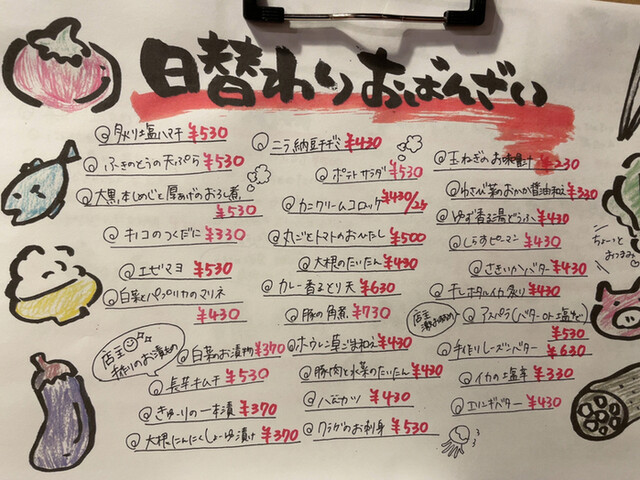 日替わりおばんざい
炙り塩ハマチ ¥530
ふきのとうの天ぷら ¥530
大黒本しめじと厚あげのおろし煮
¥530
キノコのつくだに ¥330
エビマヨ ¥530
白菜とパプリカのマリネ
¥430
店主
手作りのお漬もの
白菜のお漬物 ¥370
長芋キムチ ¥530
きゅーりの一本漬 ¥370
大根にんにくしょーゆ漬け ¥370
ニラ納豆チヂミ ¥430
ポテトサラダ ¥530
カニクリームコロッケ ¥430/2ケ
丸ごとトマトのおひたし ¥500
大根のたいたん ¥430
カレー香るとり天 ¥630
豚の角煮 ¥730
ホウレン草ごま和え ¥430
豚肉と水菜のたいたん ¥430
ハムカツ ¥430
クラゲのお刺身 ¥530
玉ねぎのお味噌汁 ¥230
わさび菜のおかか醤油和え ¥330
ゆず香る湯どうふ ¥430
しらすピーマン ¥430
ちょーっと
おつまみ
さきいかバター ¥430
干しホタルイカ炙り ¥430
店主
激おすすめ
アスパラ(バターor塩など)
¥530
手作りレーズンバター ¥630
イカの塩辛 ¥330
エリンギバター ¥430